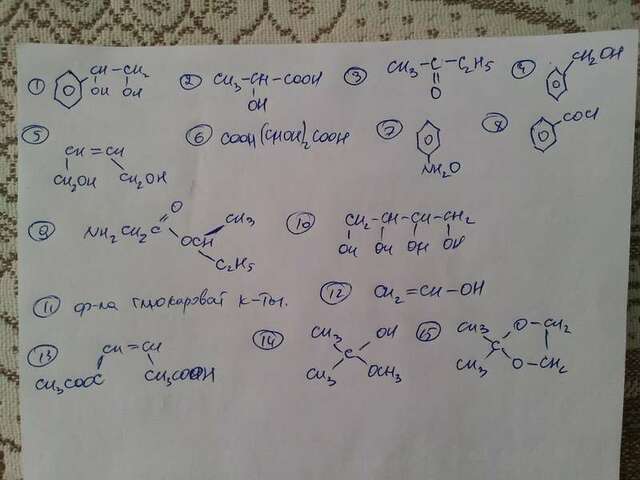 ① CH-CH₂
OH OH
② CH₃-CH-COOH
OH
③ CH₃-C-C₂H₅
O
④ CH₂OH
⑤ CH=CH
CH₂OH CH₂OH
⑥ COOH(CHOH)₂COOH
⑦ NH₂O
⑧ COCl
⑨ NH₂CH₂C O
OCH CH₃
C₂H₅
⑩ CH₂-CH-CH-CH₂
OH OH OH OH
⑪ ф-ла глюкаровой к-ты.
⑫ CH₂=CH-OH
⑬ CH=CH
CH₃COOC CH₃COOH
⑭ CH₃ OH
C
CH₃ OCH₃
⑮ CH₃ O-CH₂
C
CH₃ O-CH₂